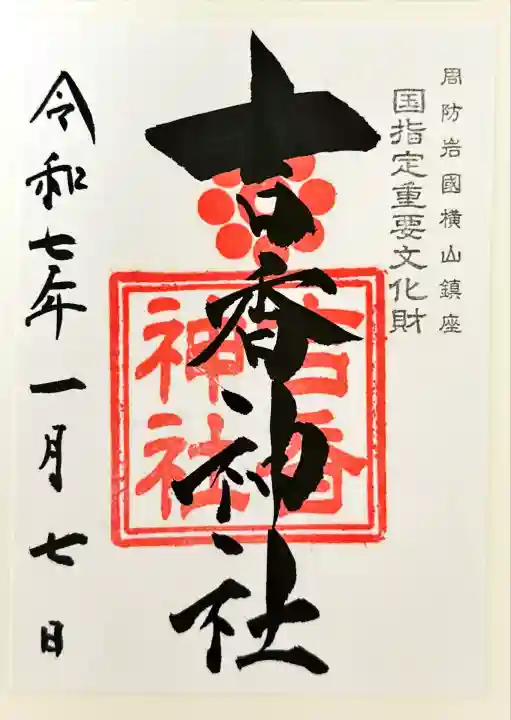 周防岩國横山鎮座
国指定重要文化財
吉香神社
吉香
神社
令和七年一月七日